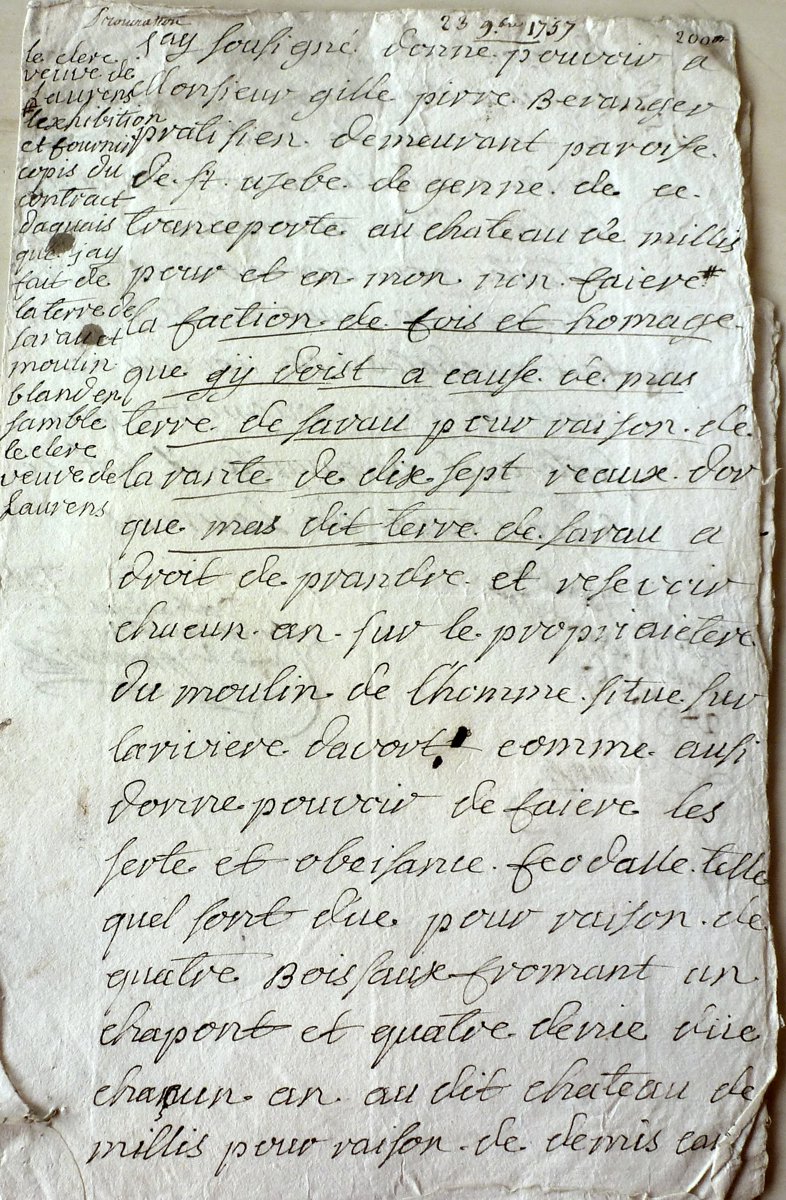 Procuration
23 9.bre 1757
jay sousigné donne pouvoir a
Monsieur gille pirre Beranger
pratisien demeurant paroise
de st usebe de genne de ce
tranceporte au chateau de millis
pour et en mon non faiere #
la faction de fois et homage
que gy doist a cause de mas
terre de sarau pour raison de
la rante de dix sept reaux dor
que mas dit terre de sarau a
droit de prandre et resevoir
chacun an sur le propriaietere
du moulin de l'homme situe sur
lariviere davort comme ausi
donne pouvoir de faiere les
serte et obeisance feodalle telle
quel sont due pour raison de
quatre Boissaux fromant un
chapont et quatre denie düe
chacun an au dit chateau de
millis pour raison de demis
le clerc
veuve de
Laurens
# lexhibition
et fournir
copis du
contract
daquais
que jay
fait de
la terre de
sarau et
moulin
bland en
samble
le clerc
veuve de
Laurens